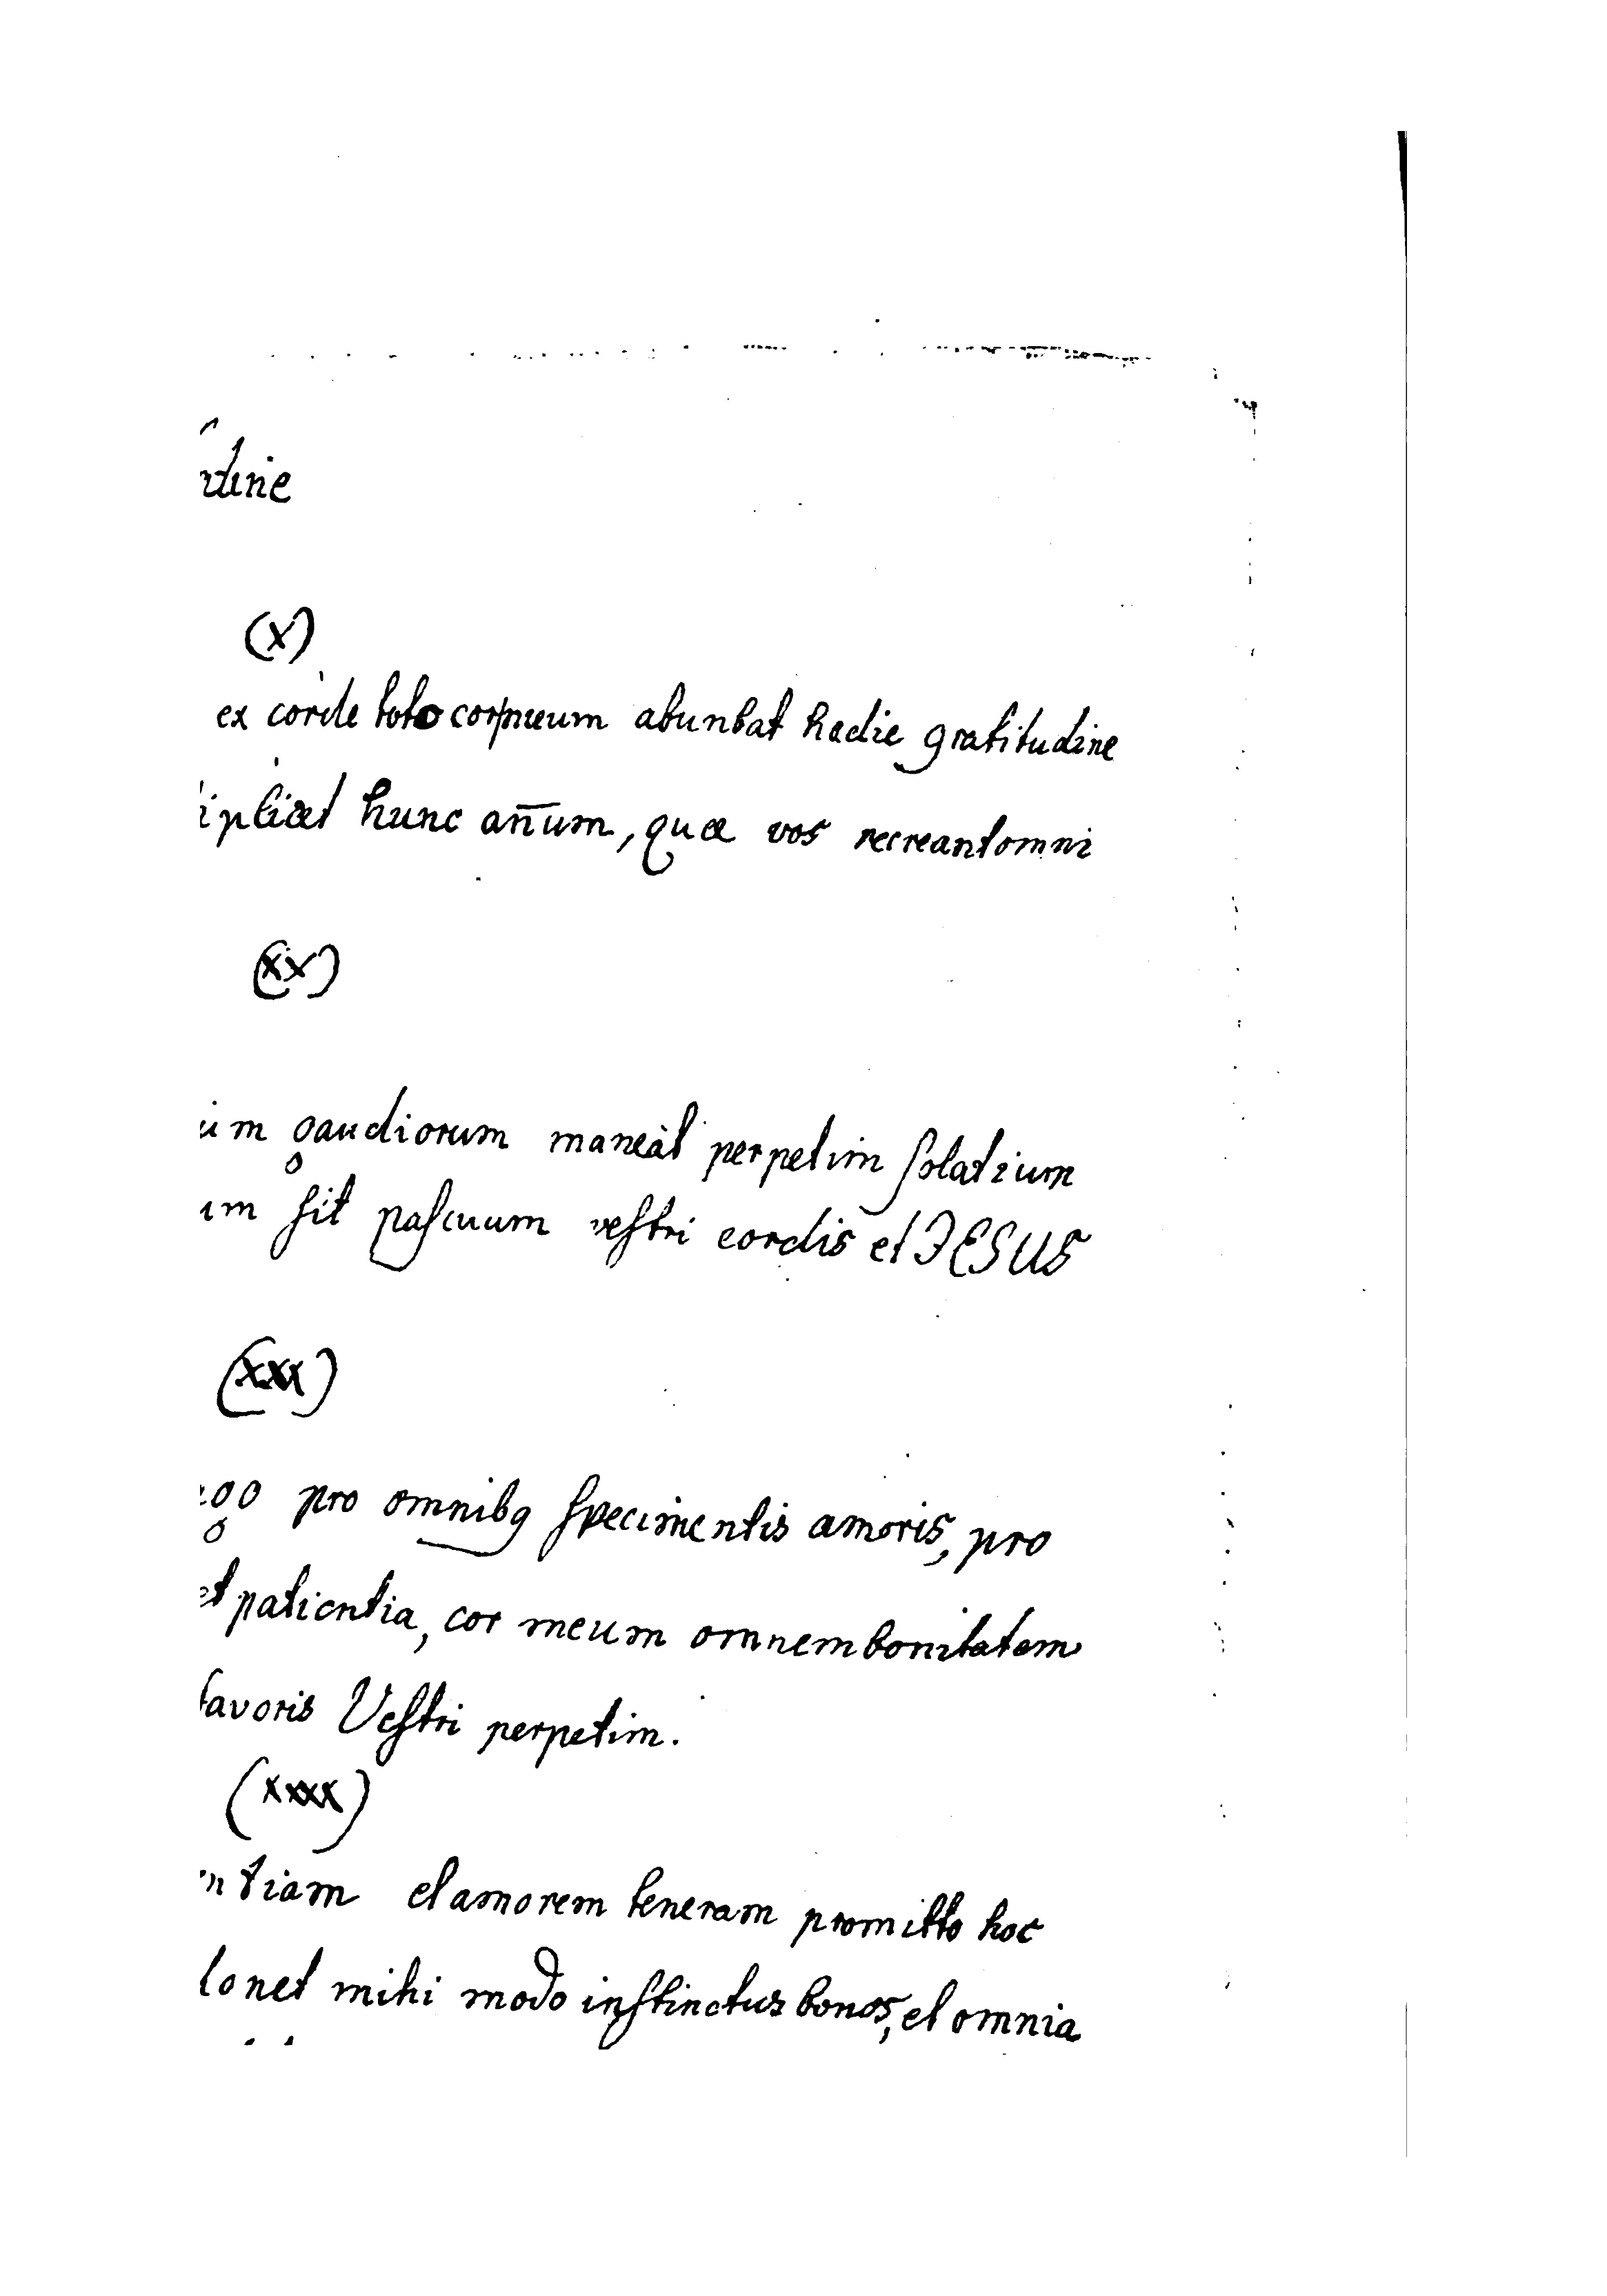 (x)
ex corde toto cor meum abunbat hodie gratitudine
hunc añum, quæ vos recreant omni
(xx)
gaudiorum maneat perpetim ſolatium
ſit paſcuum veſtri cordis et JESUS
(xxx)
pro omnibq ſpecimentis amoris, pro
et patientia, cor meum omnem bonitatem
favoris Veſtri perpetim.
(xxxx)
ntiam et amorem teneram promitto hoc
mihi modo inſtinctus bonos, et omnia